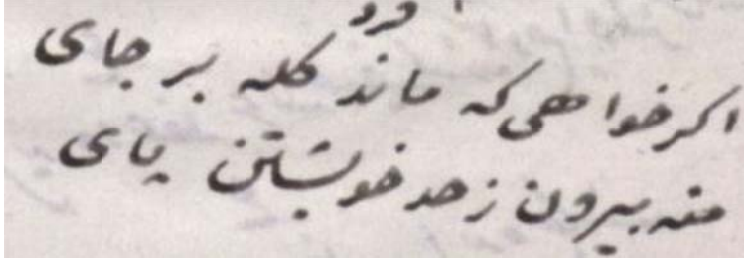 اگر خواهی که ماند کله بر جای
منه بیرون ز حد خویشتن پای